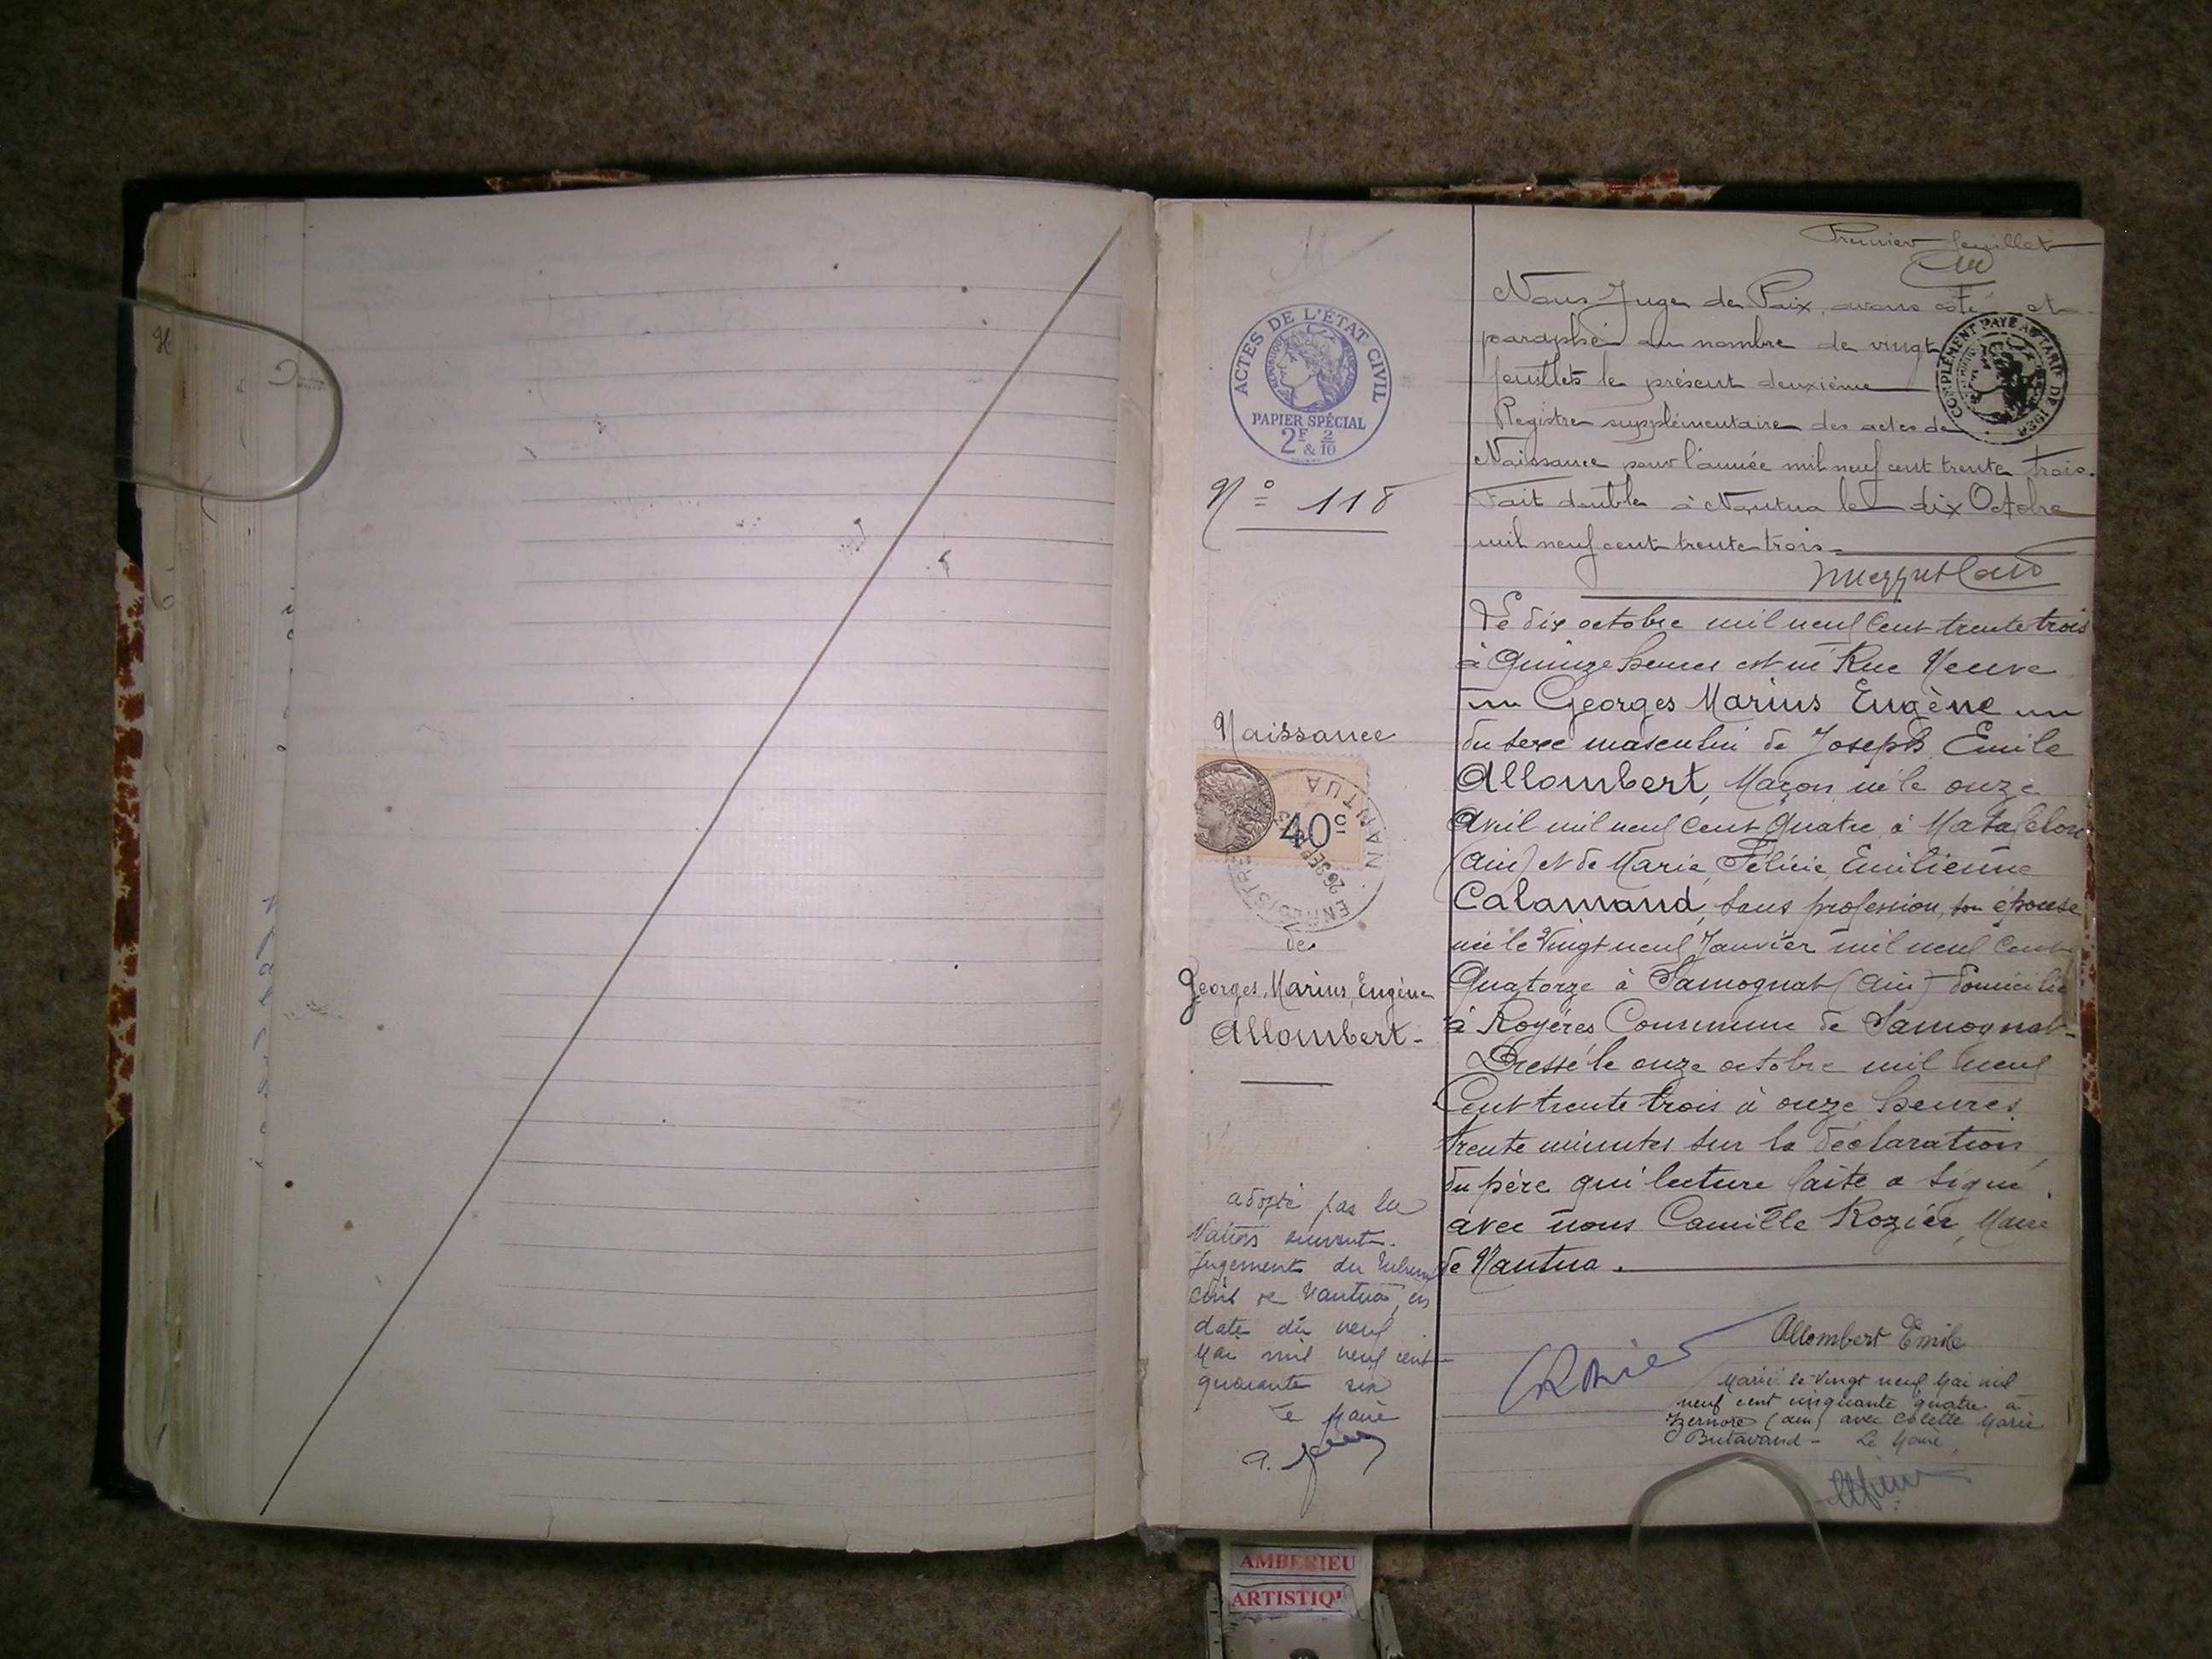 Premier feuillet
Nous Juge de Paix, avons coté et
paraphé au nombre de vingt
feuillets le présent deuxième
Registre supplémentaire des actes de
Naissance pour l'année mil neuf cent trente trois.
Fait double à Nantua le dix Octobre
mil neuf cent trente trois
COMPLÉMENT PAYÉ AU TARIF DE
ACTES DE L'ÉTAT CIVIL
PAPIER SPÉCIAL
2F & 2/10
N° 118
Naissance
40c
NANTUA
26 SEP
de
Georges, Marius, Eugène
Allombert -
adopté par la
Nation suivant
jugement du
civil de Nantua, en
date du neuf
Mai mil neuf cent
quarante six
Le Maire
Le dix octobre mil neuf cent trente trois
à Quinze heures est né Rue Neuve
un Georges Marius Eugène un
du sexe masculin de Joseph Emile
Allombert, Maçon, né le onze
Avril mil neuf cent quatre, à Matafelon
(Ain) et de Marie, Félicie, Emilienne
Calamand, sans profession, son épouse
née le Vingt neuf Janvier mil neuf cent
Quatorze à Samognat (Ain) domicilié
à Royères Commune de Samognat -
Dressé le onze octobre mil neuf
Cent trente trois à onze heures
trente minutes sur la déclaration
du père qui lecture faite a signé
avec nous Camille Rozier, Maire
de Nantua.
Allombert Emile
Marié le vingt neuf Mai mil
neuf cent cinquante quatre à
Izernore (Ain) avec Colette Marie
Butavand - Le Maire,
AMBERIEU
ARTISTIQ